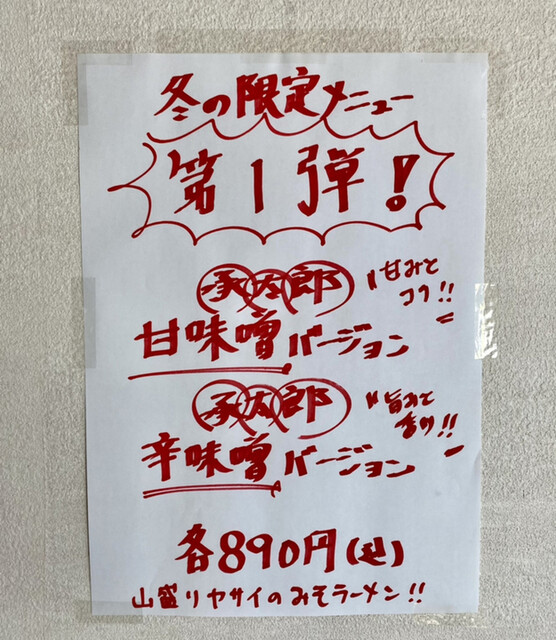 冬の限定メニュー
第1弾!
承太郎
甘味噌バージョン
"甘みと
コク!!"
承太郎
辛味噌バージョン
"旨みと
香り!!"
各890円(込)
山盛りヤサイのみそラーメン!!